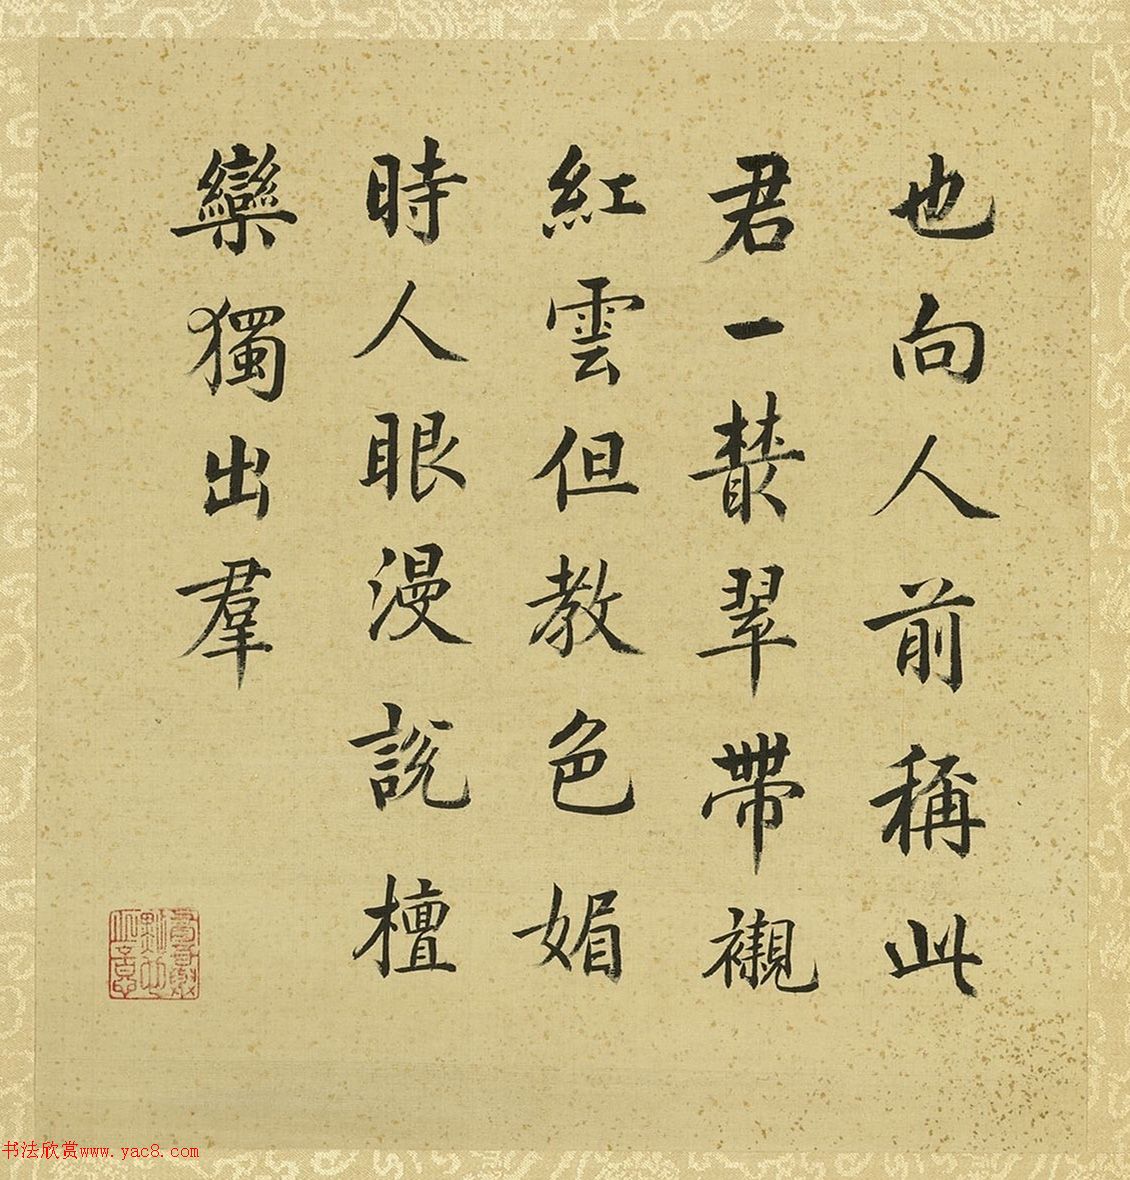 也向人前稱此
君一叢翠帶襯
紅雲但教色媚
時人眼漫說檀
欒獨出羣
书法欣赏www.yac8.com